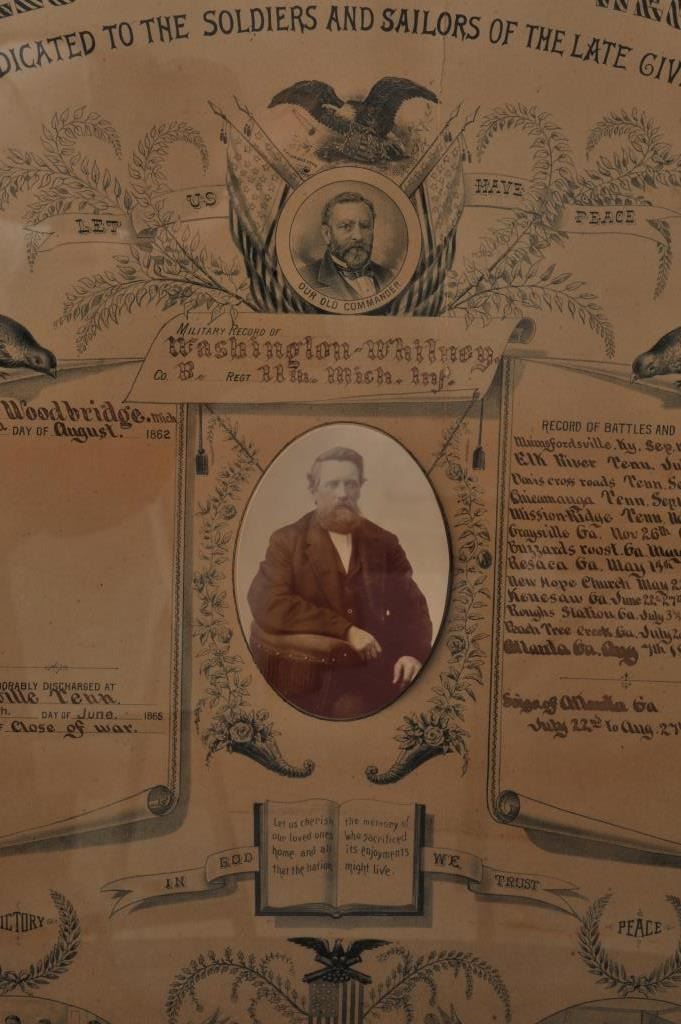 DICATED TO THE SOLDIERS AND SAILORS OF THE LATE CIV
LET US HAVE PEACE
OUR OLD COMMANDER
MILITARY RECORD OF
Washington Whitney.
CO. B. REGT 11th. Mich. Inf.
Woodbridge. Mich
DAY OF August. 1862
ORABLY DISCHARGED AT
ville Tenn.
h. DAY OF June. 1865
F Close of war.
RECORD OF BATTLES AND
Munsfordsville. Ky. Sep.
Elk River Tenn. Ju
Davis cross roads Tenn. Se
Chicamauga Tenn. Sept
Mission Ridge Tenn. No
Graysville Ga. Nov 26th
Buzzards roost. Ga May
Resaca Ga. May 14th
New Hope Church May 2
Kenesaw Ga. June 22-27th
Roughs Station Ga. July 3
Peach Tree Creek Ga. July 2
Atlanta Ga. Aug 7th
Seige of Atlanta Ga
July 22nd to Aug. 27
Let us cherish
our loved ones
home and all
that the nation
the memory of
who sacrificed
its enjoyments
might live.
IN GOD WE TRUST
ICTORY
PEACE